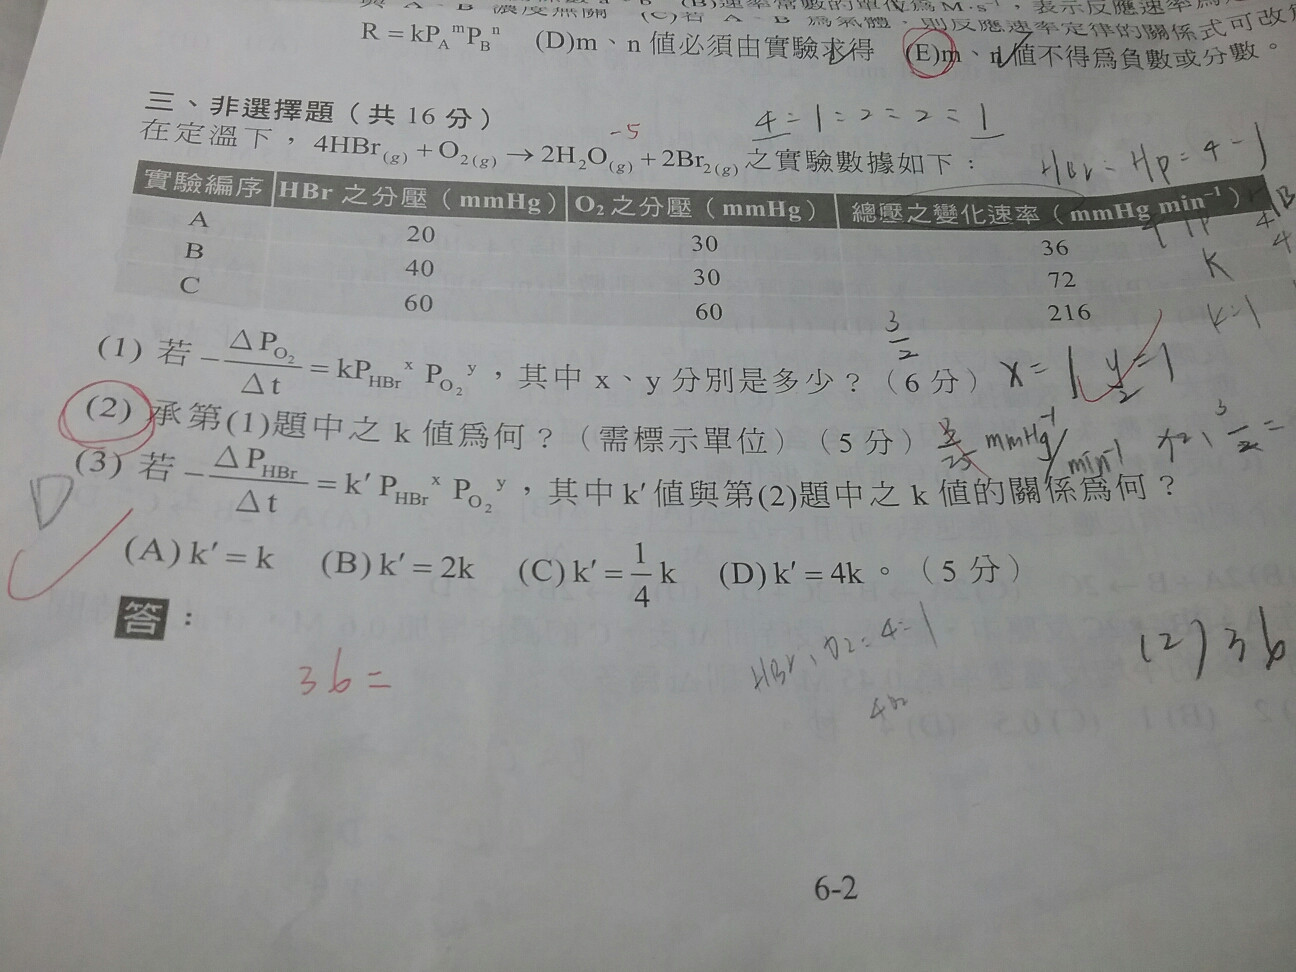 濃度無關 (C)若 A、B 為氣體,則反應速率定律的關係式可改
R = kP_A^m P_B^n (D)m、n 值必須由實驗求得 (E)m、n 值不得為負數或分數。
三、非選擇題(共 16 分)
4 : 1 : 2 : 2 : 1
-5
在定溫下,4HBr(g) + O2(g) → 2H2O(g) + 2Br2(g) 之實驗數據如下:
HBr : Hp = 4 - 1
實驗編序 HBr 之分壓(mmHg) O2 之分壓(mmHg) 總壓之變化速率(mmHg min⁻¹)
A 20 30 36
B 40 30 72
C 60 60 216
K
k=1
3/2
(1) 若 -ΔP_O2/Δt = kP_HBr^x P_O2^y,其中 x、y 分別是多少?(6 分) x = 1 y = 1
(2) 承第(1)題中之 k 值為何?(需標示單位)(5 分) mmHg⁻¹ min⁻¹
(3) 若 -ΔP_HBr/Δt = k′ P_HBr^x P_O2^y,其中 k′ 值與第(2)題中之 k 值的關係為何?
D
(A) k′ = k (B) k′ = 2k (C) k′ = 1/4 k (D) k′ = 4k。(5 分)
答:
HBr : O2 = 4 = 1
(2) 36
36 =
6-2